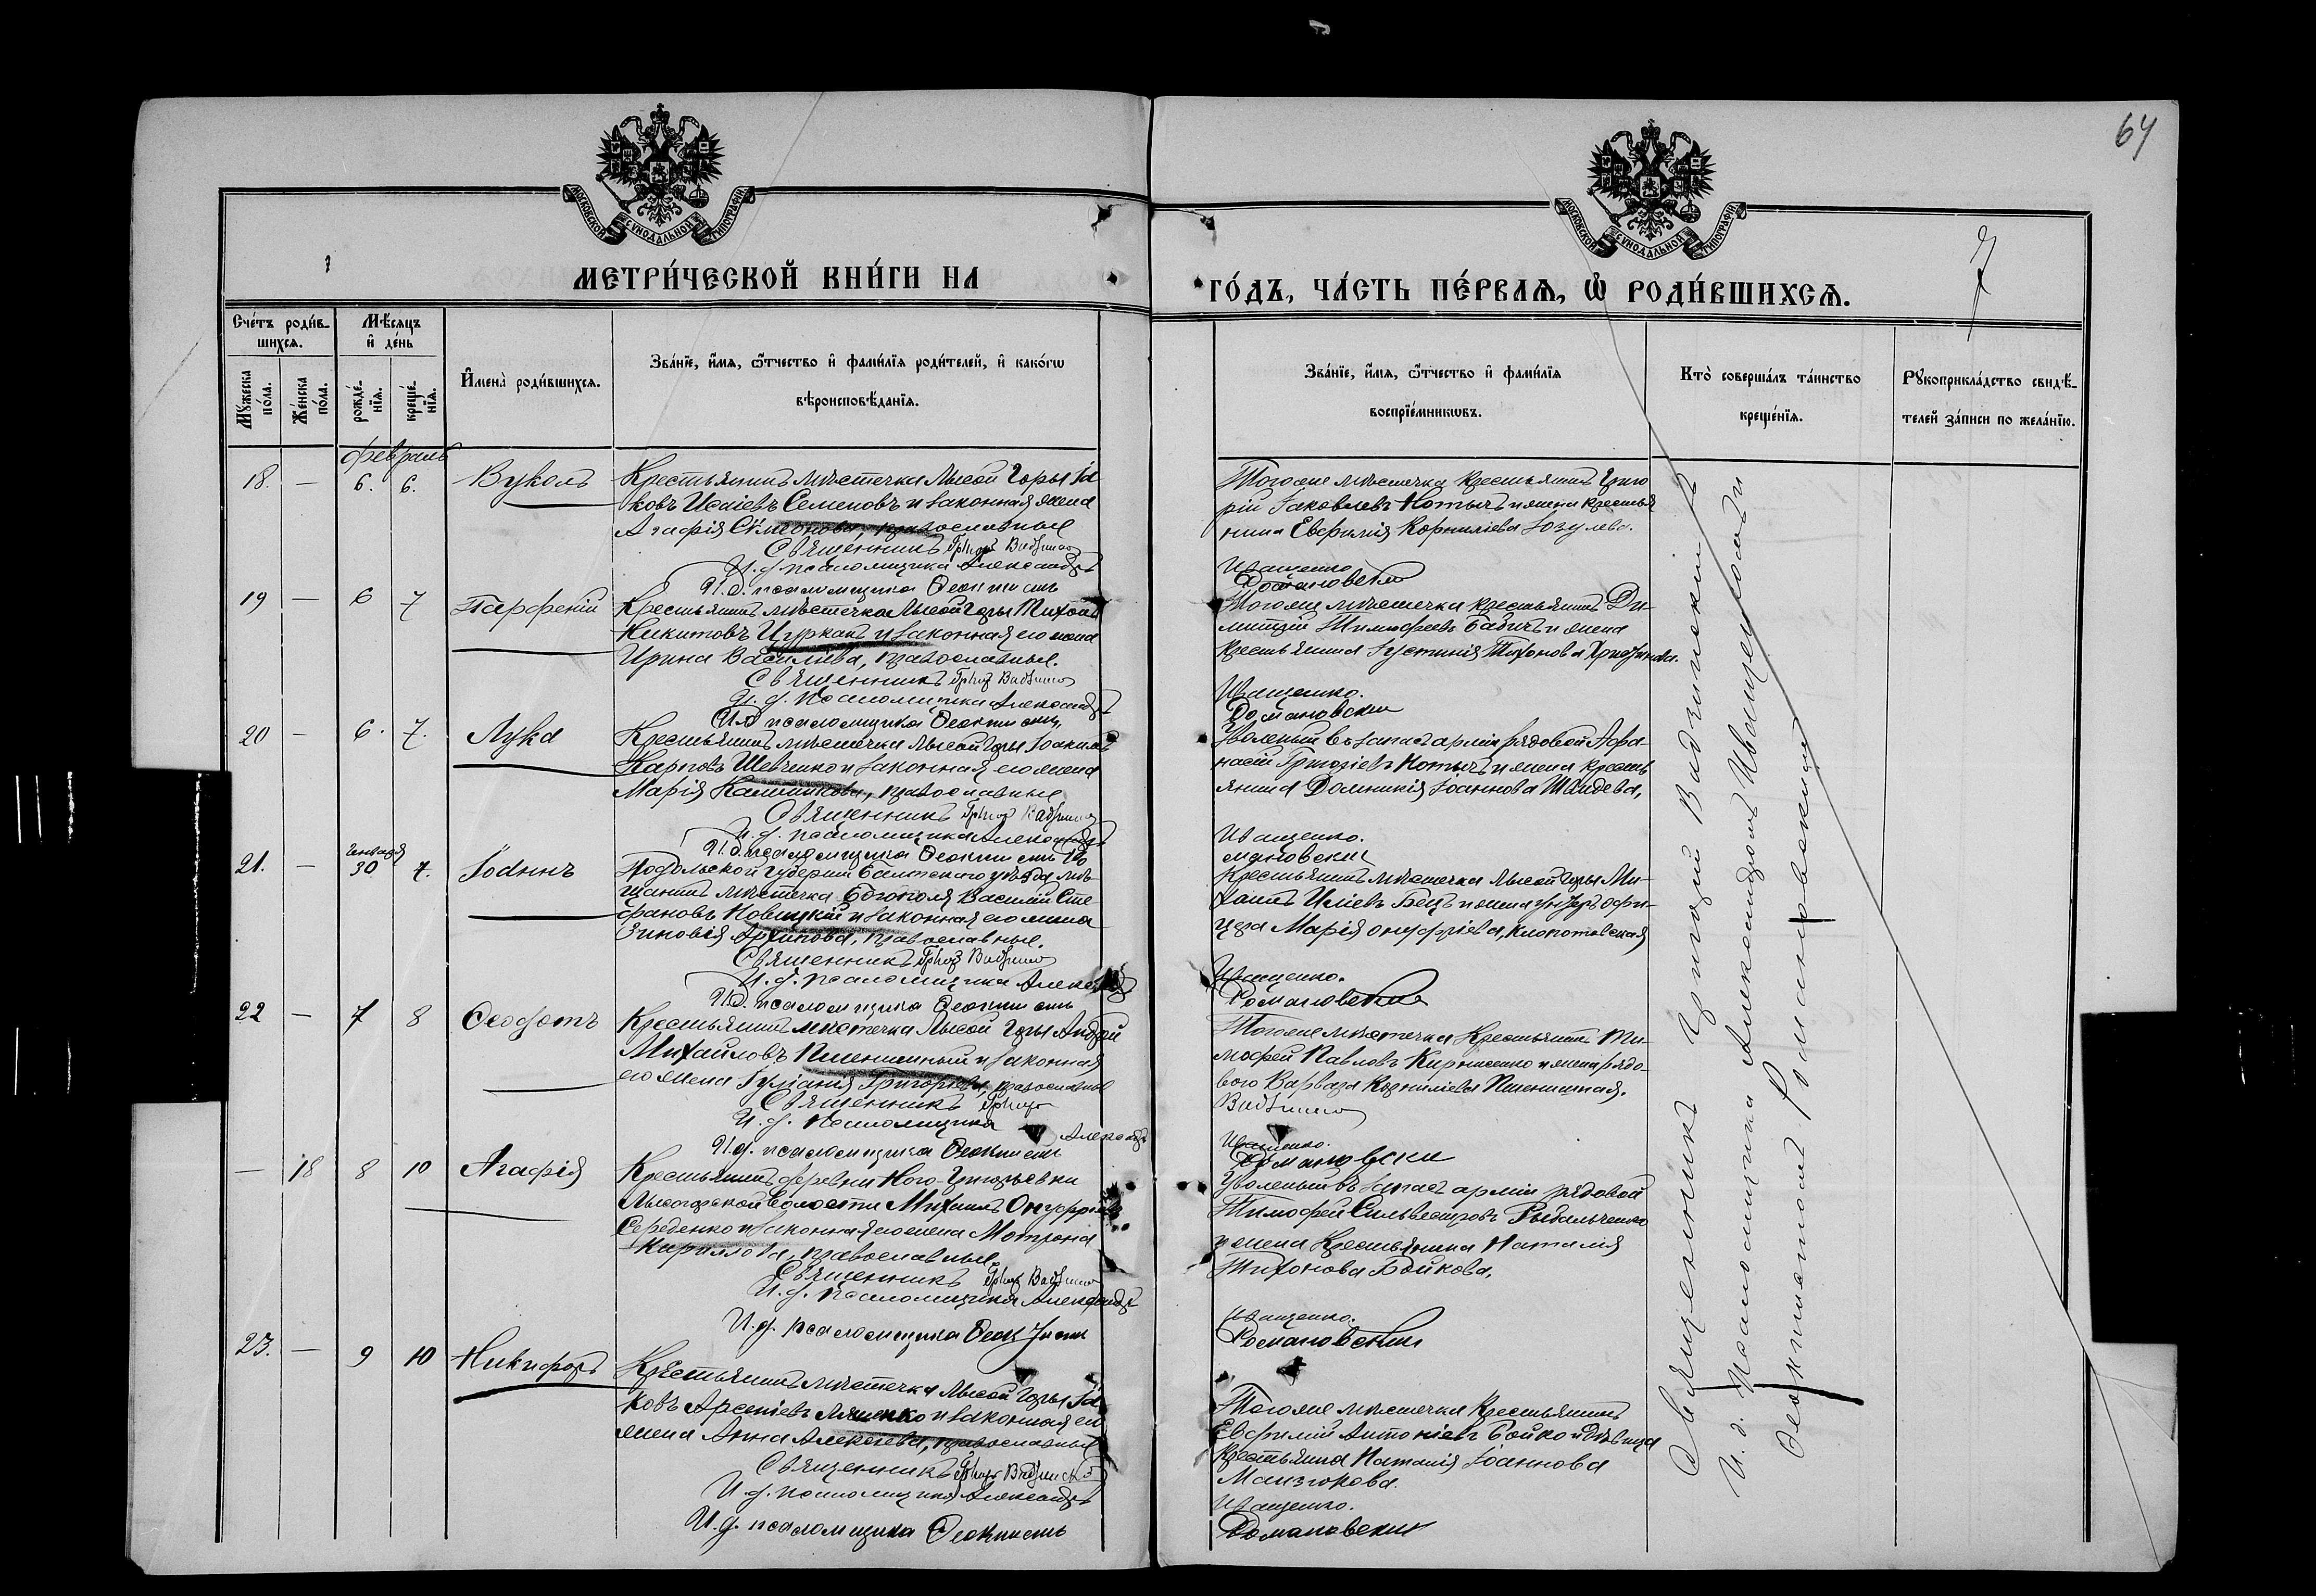 64
7
МОСКОВСКОЙ СѴНОДАЛЬНОЙ ТИПОГРАФІИ
МОСКОВСКОЙ СѴНОДАЛЬНОЙ ТИПОГРАФІИ
МЕТРИ́ЧЕСКОЙ КНИ́ГИ НА
ГО́ДЪ, ЧА́СТЬ ПЕ́РВАѦ, Ѡ҆ РОДИ́ВШИХСѦ.
Сче́тъ роди́в-
шихсѧ.
Мꙋ́жеска по́ла.
Же́нска по́ла.
Мѣ́сяцъ
и҆ де́нь
рожде́-
нїѧ.
креще́-
нїѧ.
И҆мена̀ роди́вшихсѧ.
Зва́нїе, и҆́мѧ, ѻ҆́тчество и҆ фами́лїѧ роди́телей, и҆ како́гѡ
вѣроисповѣ́данїѧ.
Зва́нїе, и҆́мѧ, ѻ҆́тчество и҆ фами́лїѧ
воспрїе́мникѡвъ.
Кто̀ соверша́лъ та́инство
креще́нїѧ.
Рꙋкоприкла́дство свидѣ́-
телей за́писи по жела́нїю.
Февраль
18. — 6. 6. Вуколъ
Крестьянинъ мѣстечка Лысой Горы Іа
ковъ Исаіевъ Семеновъ и законная жена
Агафія Симеонова, православные
Священникъ Григор Вадзинс
И. д. псаломщика Александръ
И. д. псаломщика Феоктистъ
Тогоже мѣстечка крестьянинъ Григо
рій Іаковлевъ Котычъ и жена крестья
нина Евфимія Корниліева Зозулева.
Иващенко
Романовскій
19 — 6 7 Парфеній
Крестьянинъ мѣстечка Лысой Горы Тихонъ
Никитовъ Цурканъ и законная его жена
Ирина Василіева, православные.
Священникъ Григор Вадзинс
И. д. псаломщика Александръ
И. д. псаломщика Феоктистъ
Тогоже мѣстечка крестьянинъ Ди-
митрій Тимофеевъ Бабичъ и жена
крестьянина Іустинія Тихонова
Иващенко.
Романовскій
20 — 6. 7. Лука
Крестьянинъ мѣстечка Лысой Горы Іоакимъ
Карповъ Шевченко и законная его жена
Марія Калинникова, православные
Священникъ Григор Вадзинс
И. д. псаломщика Александръ
И. д. псаломщика Феоктистъ Ро
Уволенный въ запасъ арміи рядовой Афа-
насій Григоріевъ Котычъ и жена кресть
янина Домникія Іоаннова
Иващенко.
мановскій
21. — Генваря 30 7. Іоаннъ
Подольской губерніи Балтскаго уѣзда мѣ-
щанинъ мѣстечка Богополя Василій Сте-
фановъ Новицкій и законная его жена
Зиновія Архипова, православные.
Священникъ Григор Вадзинс
И. д. псаломщика Александръ
И. д. псаломщика Феоктистъ
Крестьянинъ мѣстечка Лысой Горы Ми-
хаилъ Иліевъ Бецъ и жена унтеръ офи-
цера Марія Онуфріева, Клопотовская
Иващенко.
Романовскій
22 — 7 8 Феодотъ
Крестьянинъ мѣстечка Лысой Горы Андрей
Михайловъ Пшеничный и законная
его жена Іуліанія Григоріева, православные
Священникъ Григор
И. д. псаломщика Александръ
И. д. псаломщика Феоктистъ
Тогоже мѣстечка Крестьянинъ Ти-
мофей Павловъ Кириченко и жена рядо-
вого Варвара Корниліева Пшеничная.
Вадзинс
Иващенко.
Романовскій
— 18 8 10 Агафія
Крестьянинъ деревни Ново-Григорьевки
Лысогорской волости Михаилъ Онуфріевъ
Середенко и законная его жена Мотрона
Кириллова, православные.
Священникъ Григор Вадзинс
И. д. псаломщика Александръ
И. д. псаломщика Феоктистъ
Уволенный въ запасъ арміи рядовой
Тимофей Сильвестровъ Рыбальченко
и жена Крестьянина Наталія
Тихонова Бойкова,
Иващенко.
Романовскій
23. — 9 10 Никифоръ
Крестьянинъ мѣстечка Лысой Горы Іа
ковъ Арсеніевъ Ляшенко и законная его
жена Анна Алексѣева, православные
Священникъ Григор Вадзинск
И. д. псаломщика Александръ
И. д. псаломщика Феоктистъ
Тогоже мѣстечка Крестьянинъ
Евфимій Антоніевъ Бойко и дѣвица
крестьянка Наталія Іоаннова
Иващенко.
Романовскій
Священникъ Григорій Вадзинскій
И. д. Псаломщика Александръ Иващенко
Феоктистъ Романовскій